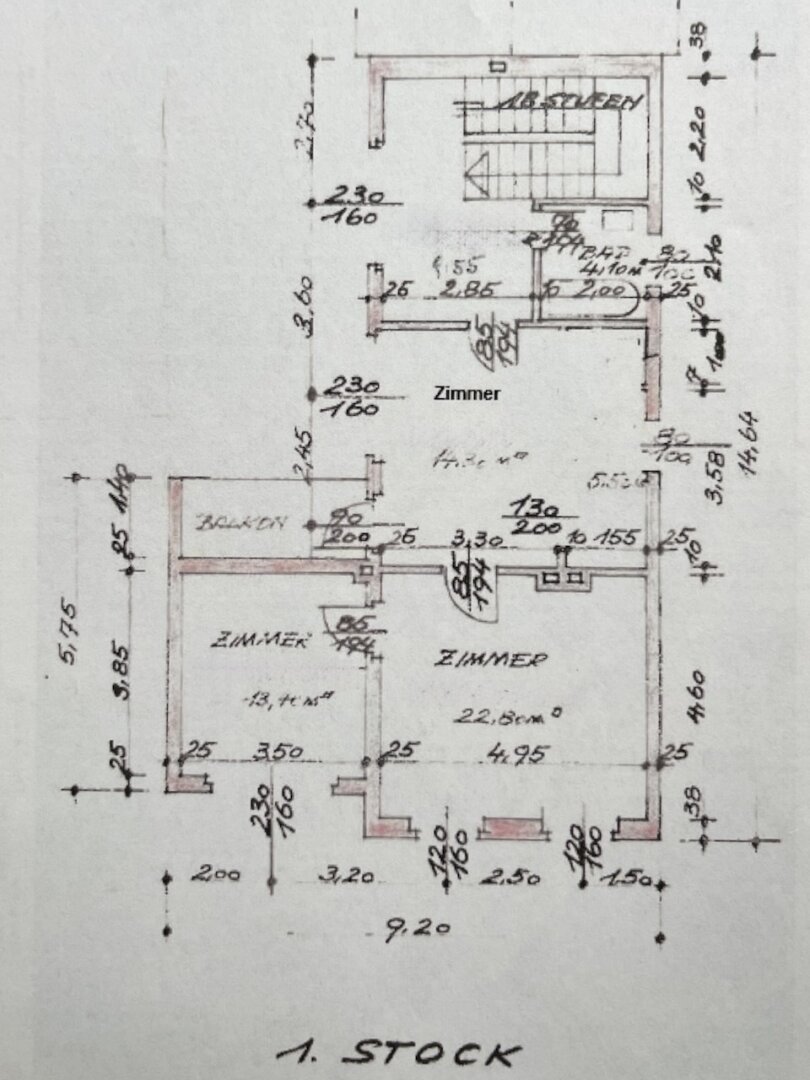 38
18 STUFEN
2,20
2,20
10
230
160
70
BAD
4,10m
80
100
2,10
25
2,85
10
2,00
25
10
3,60
85
194
7
230
160
Zimmer
80
100
14,64
3,58
2,45
1,40
BALKON
90
200
130
200
25
25
3,30
10
155
25
10
85
194
5,75
ZIMMER
85
194
ZIMMER
3,85
13,40m²
22,80m²
4,60
25
3,50
25
4,95
25
25
230
160
38
120
160
120
160
2,00
3,20
2,50
1,50
9,20
1. STOCK